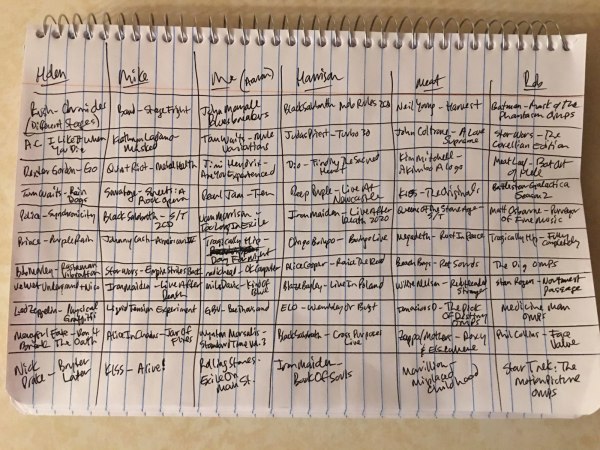 Mike Me (Aaron) Harrison Meat Rob
Rush - Chronicles Band - Stage Fright John Mayall Black Sabbath Mob Rules 2CD Neil Young - Harvest Batman - Mask of the
(Different Stages) Bluesbreakers Phantasm OMPS
A.C. I Like It When Judas Priest - Turbo 30 John Coltrane - A Love Star Wars - The
You Die Masked Tom Waits - Mule Variations Supreme Corellian Edition
Dexter Gordon - GO Quiet Riot - Metal Health Jimi Hendrix - Dio - Holy The Sacred Kim Mitchell - Meat Loaf - Bat Out
Are You Experienced Heart Akimbo Alogo of Hell
Tom Waits - Rain Savatage - Streets: A Pearl Jam - Ten Deep Purple - Live At KISS - The Originals Battlestar Galactica
Dogs Rock Opera Newcastle Season 2
Police - Synchronicity Black Sabbath - S/T Van Morrison - Iron Maiden - Live After Queens of the Stone Age - Matt Osborne - Purveyor
2CD Too Long In Exile Death 2020 S/T of Fine Music
Prince - Purple Rain Johnny Cash - American IV Tragically Hip - Oingo Boingo - Boingo Live Megadeth - Rust In Peace Tragically Hip - Fully
Day For Night Completely
Bob Marley - Rastaman Star Wars - Empire Strikes Back Radiohead - OK Computer Alice Cooper - Raise The Dead Beach Boys - Pet Sounds The Dig OMPS
Vibration
Velvet Underground + Nico Iron Maiden - Live After Miles Davis - Kind of Blaze Bayley - Live In Poland Willie Nelson - Redheaded Stan Rogers - Northwest
Death Blue Stranger Passage
Led Zeppelin - Physical Liquid Tension Experiment ELO - Tenacious D - The Pick Medicine Man
Graffiti Of Destiny OMPS OMPS
Mercyful Fate - Don't Alice In Chains - Jar Of Wynton Marsalis - Black Sabbath - Cross Purposes Zappa/Mothers - Roxy Phil Collins - Face
Break The Oath Flies Standard Time Vol. 3 Live & Elsewhere Value
Nick KISS - Alive! Rolling Stones - Iron Maiden - Marillion - Star Trek: The
Drake - Bryter Exile On Book Of Souls Misplaced Motion Picture
Later Main St. Childhood OMPS